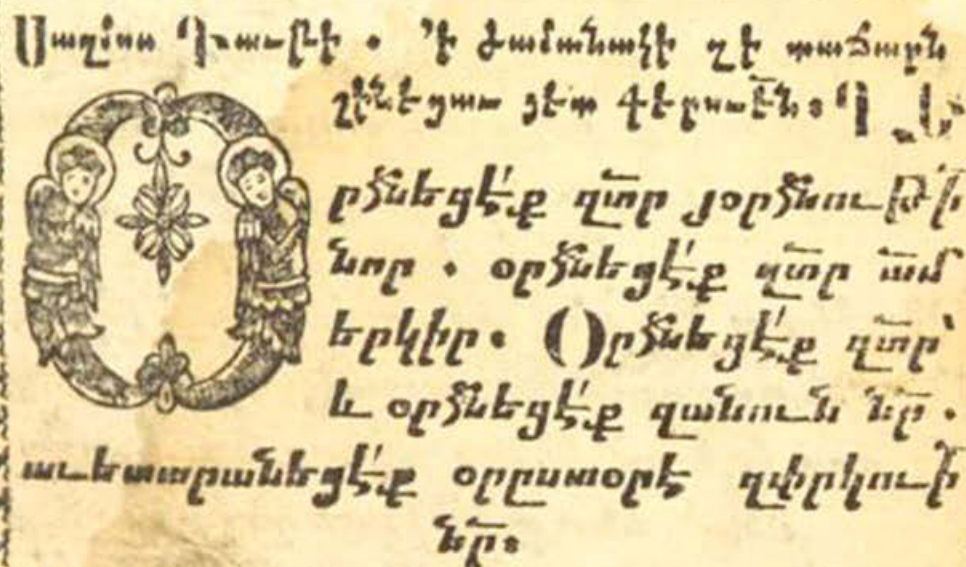 Սաղմոս Դաւթի ․ ՚ի ժամանակի զի տաճարն
շինեցաւ յետ գերութե̅ն։
Օրհնեցէ՛ք զտ̅ր յօրհնութի̅
նոր ․ օրհնեցէ՛ք զտ̅ր ամ̅
երկիր․ Օրհնեցէ՛ք զտ̅ր՝
և օրհնեցէ՛ք զանուն նր̅ ․
աւետարանեցէ՛ք օրըստօրէ զփրկուի̅
նր̅։